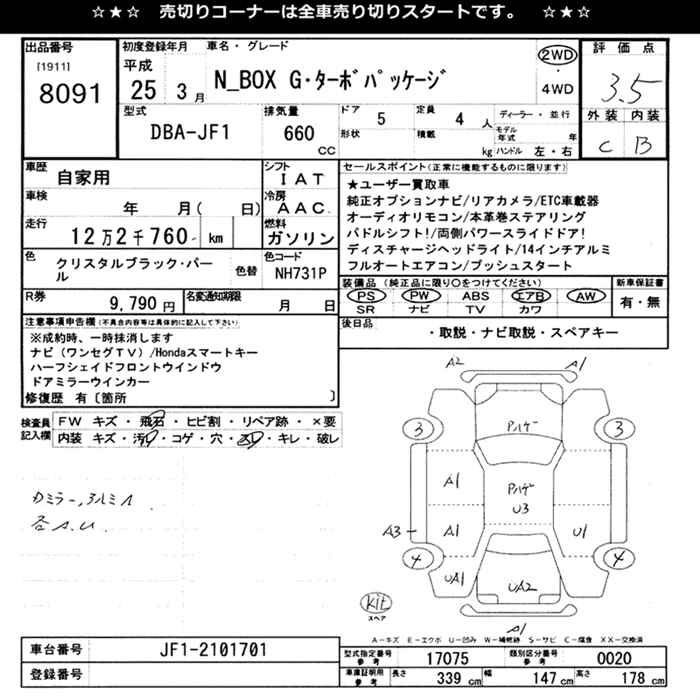 ☆★☆ 売切りコーナーは全車売り切りスタートです。 ☆★☆
出品番号
[1911]
8091
初度登録年月
平成
25 3月
車名・グレード
N_BOX G・ターボパッケージ
2WD
・
4WD
評価点
3.5
外装 内装
C B
型式
DBA-JF1
排気量
660
CC
ドア 5
形状
定員 4 人
積載 kg
ディーラー・並行
モデル年式 年
ハンドル 左・右
車歴
自家用
シフト
IAT
車検
年 月( 日)
冷房
AAC
走行
12万2千760 km
燃料
ガソリン
色
クリスタルブラック・パール
色替
色コード
NH731P
R券
9,790 円
名変通知期限
月 日
セールスポイント(正常に機能するものに限ります)
★ユーザー買取車
純正オプションナビ/リアカメラ/ETC車載器
オーディオリモコン/本革巻ステアリング
パドルシフト!/両側パワースライドドア!
ディスチャージヘッドライト/14インチアルミ
フルオートエアコン/プッシュスタート
装備品(純正品に限り〇をつけてください)
PS PW ABS エアB AW
SR ナビ TV カワ
新車保証書
有・無
後日品
・取説・ナビ取説・スペアキー
注意事項申告欄(不具合内容等は具体的に記入して下さい)
※成約時、一時抹消します
ナビ(ワンセグTV)/Hondaスマートキー
ハーフシェイドフロントウインドウ
ドアミラーウインカー
修復歴 有〔箇所 〕
検査員記入欄
FW キズ・飛石・ヒビ割・リペア跡・×要
内装 キズ・汚れ・コゲ・穴・スレ・キレ・破レ
A2 A1
Pハゲ
3 3
A1 Pハゲ
U3
A3 A1 U1
4 4
UA1 UA2
Kit
スペア
A1
A－キズ E－エクボ U－凹み W－補修跡 S－サビ C－腐食 XX－交換済
車台番号
JF1-2101701
登録番号
型式指定番号
参考
17075
類別区分番号
参考
0020
車庫証明用
参考
長さ 339 cm 幅 147 cm 高さ 178 cm